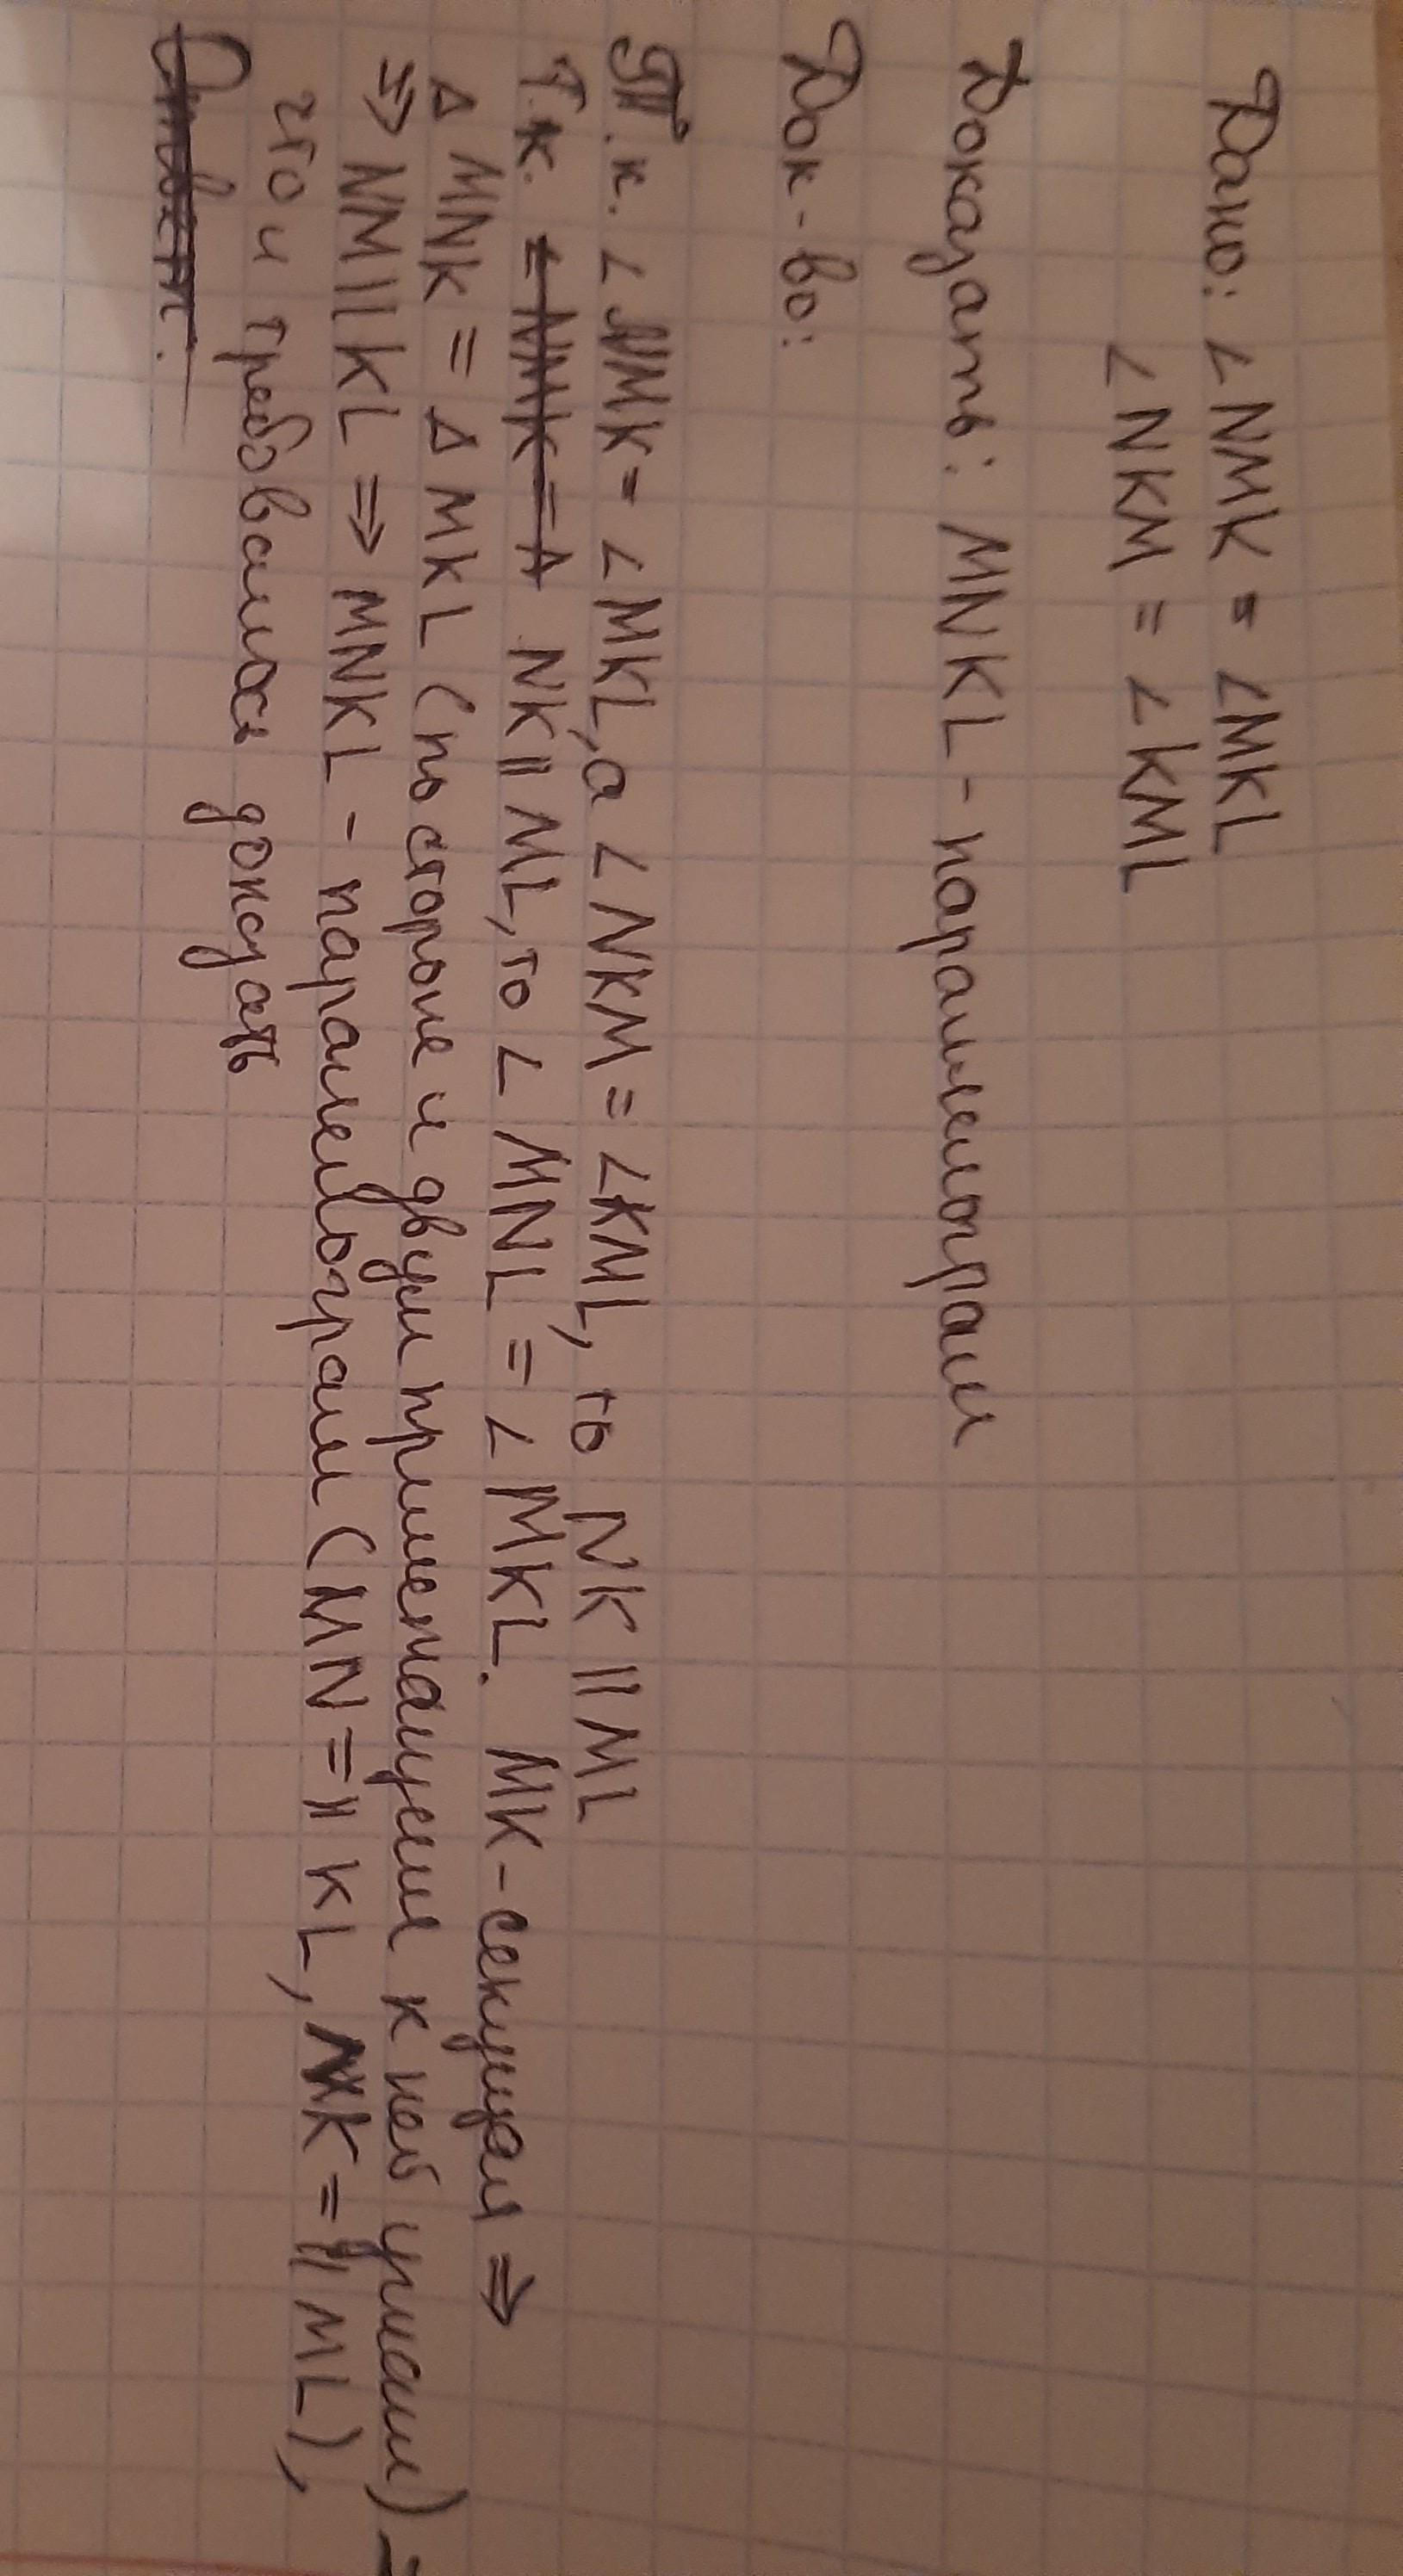 Дано: ∠NMK = ∠MKL
∠NKM = ∠KML
Доказать: MNKL - параллелограм
Док-во:
Т.к. ∠NMK = ∠MKL, а ∠NKM = ∠KML, то NK || ML
Т.к. ∠NMK = ∠ NK || ML, то ∠MNL = ∠MKL. MK - секущая ⇒
∆ MNK = ∆ MKL (по стороне и двум прилежащим к ней углам) =
⇒ NM || KL ⇒ MNKL - паралелограм (MN = || KL, NK = || ML),
что и требовалось доказать
Ответ: